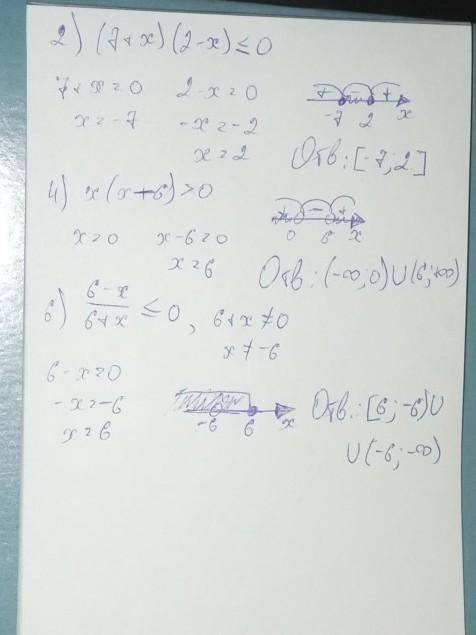 2) (7+x)(2-x)≤0
7+x=0 2-x=0
x=-7 -x=-2
x=2
+ - +
-7 2 x
Отв: [-7; 2]
4) x(x-6)>0
x=0 x-6=0
x=6
+ - +
0 6 x
Отв: (-∞; 0) U (6; +∞)
6) (6-x)/(6+x) ≤ 0, 6+x≠0
x≠-6
6-x=0
-x=-6
x=6
-6 6 x
Отв: [6; -6) U
U (-6; -∞)